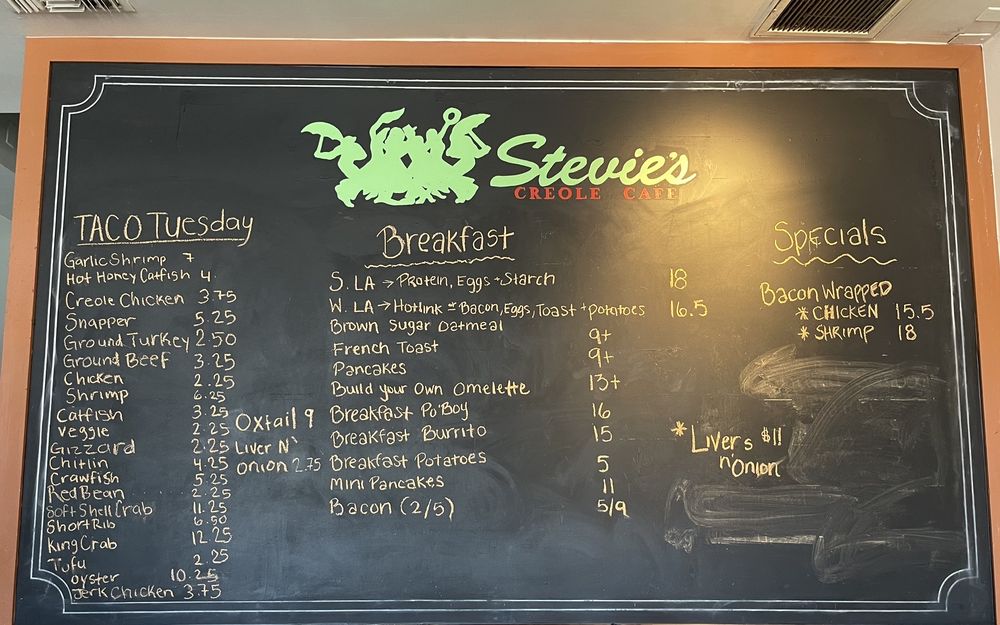 Stevie's
CREOLE CAFE
TACO Tuesday
Garlic Shrimp 7
Hot Honey Catfish 4.
Creole Chicken 3.75
Snapper 5.25
Ground Turkey 2.50
Ground Beef 3.25
Chicken 2.25
Shrimp 6.25
Catfish 3.25
Veggie 2.25
Gizzard 2.25
Chitlin 4.25
Crawfish 5.25
Red Bean 2.25
Soft Shell Crab 11.25
Short Rib 6.50
King Crab 12.25
Tofu 2.25
oyster 10.25
Jerk Chicken 3.75
Oxtail 9
Liver N'
onion 2.75
Breakfast
S. LA → Protein, Eggs + Starch 18
W. LA → Hotlink or Bacon, Eggs, Toast + potatoes 16.5
Brown Sugar Oatmeal
French Toast 9+
Pancakes 9+
Build your Own Omelette 13+
Breakfast Po'Boy 16
Breakfast Burrito 15
Breakfast Potatoes 5
Mini Pancakes 11
Bacon (2/5) 5/9
Specials
Bacon Wrapped
* CHICKEN 15.5
* SHRIMP 18
* Livers $11
n'Onion